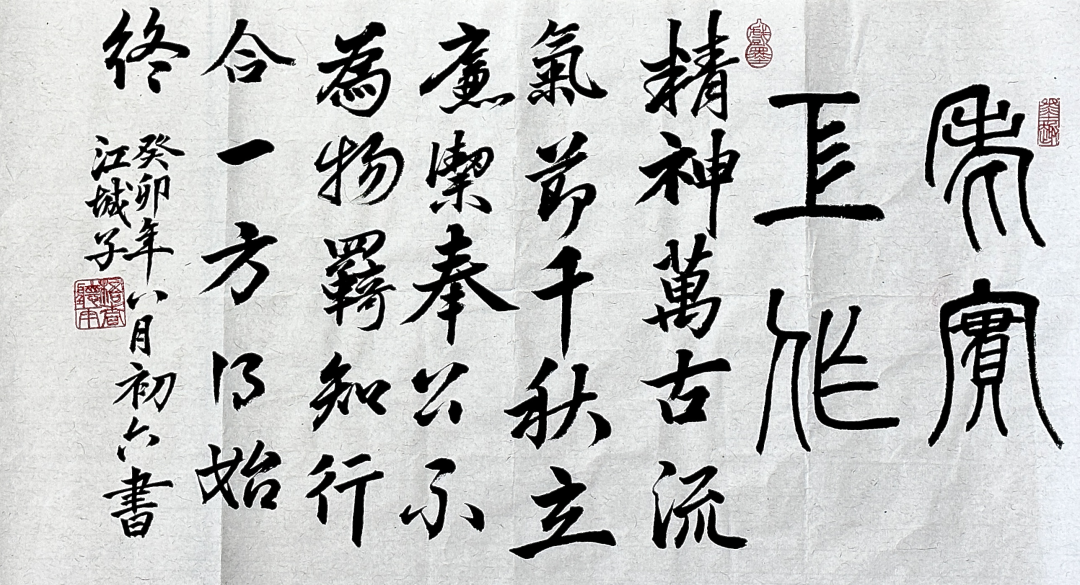 實
作
精神萬古流
氣節千秋立
廉潔奉公不
為物羈知行
合一方得始
終
癸卯年八月初六書
江城子